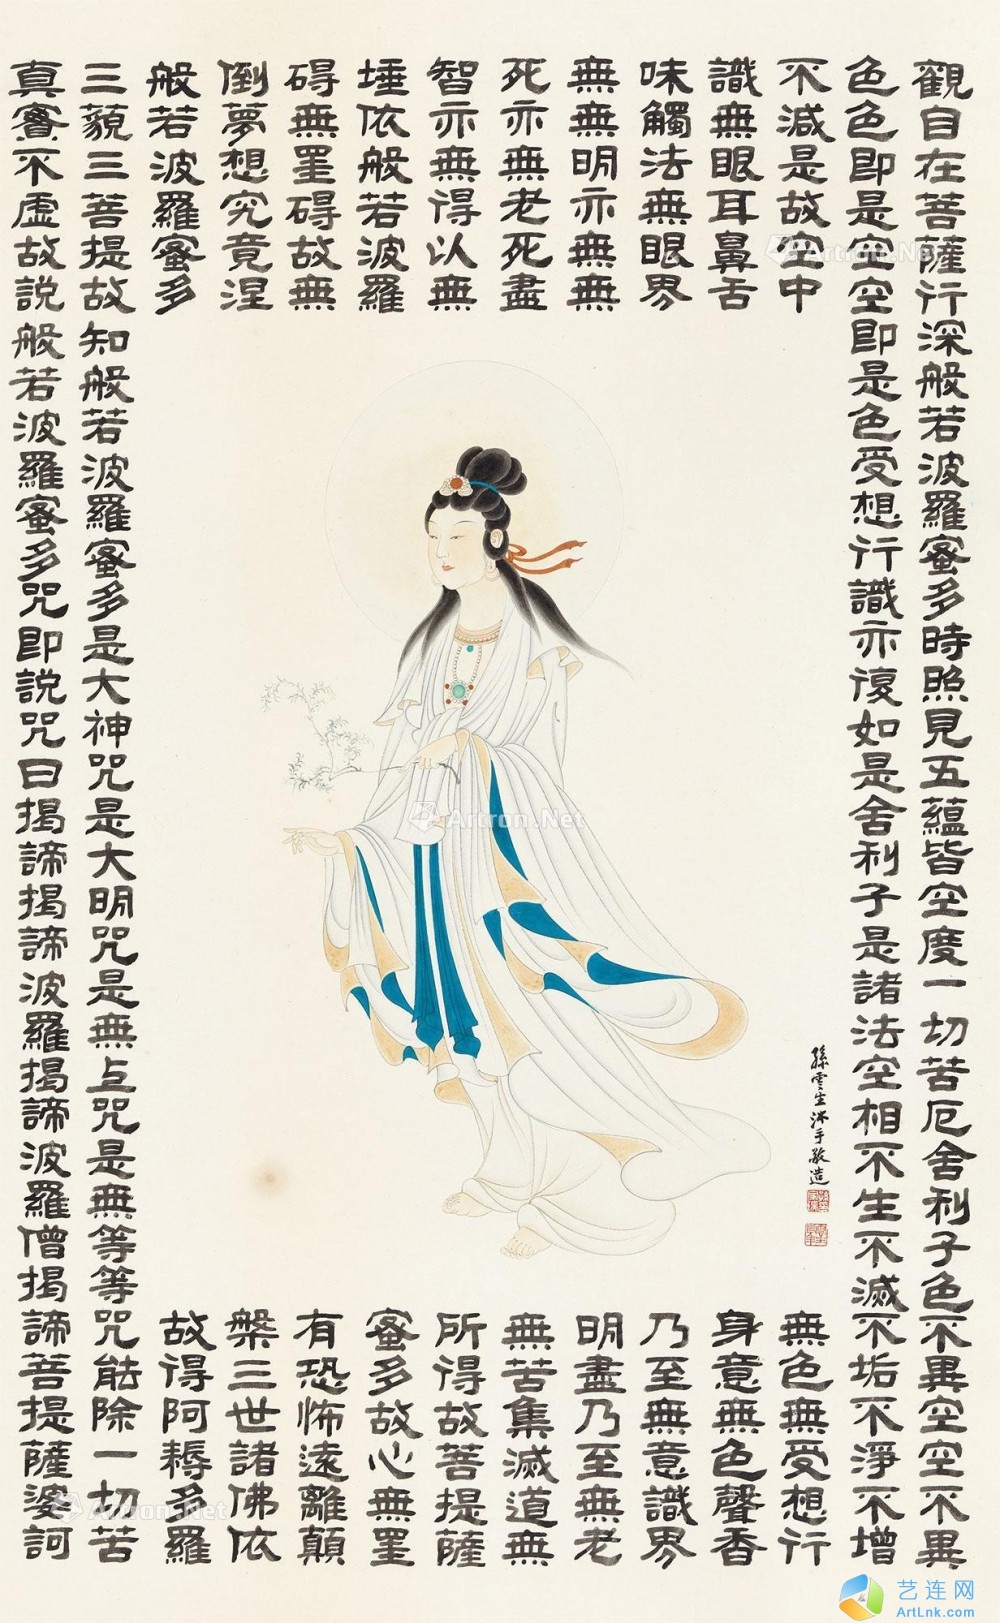 觀自在菩薩行深般若波羅蜜多時照見五蘊皆空度一切苦厄舍利子色不異空空不異
色色即是空空即是色受想行識亦復如是舍利子是諸法空相不生不滅不垢不淨不增
不減是故空中
無色無受想行
識無眼耳鼻舌
身意無色聲香
味觸法無眼界
乃至無意識界
無無明亦無無
明盡乃至無老
死亦無老死盡
無苦集滅道無
智亦無得以無
所得故菩提薩
埵依般若波羅
蜜多故心無罣
碍無罣碍故無
有恐怖遠離顛
倒夢想究竟涅
槃三世諸佛依
般若波羅蜜多
故得阿耨多羅
三藐三菩提故知般若波羅蜜多是大神咒是大明咒是無上咒是無等等咒能除一切苦
真實不虛故說般若波羅蜜多咒即說咒曰揭諦揭諦波羅揭諦波羅僧揭諦菩提薩婆訶
孫雲生沐手敬造
Artron.Net
Artron.Net
Artron.Net
艺连网
ArtLnk.com